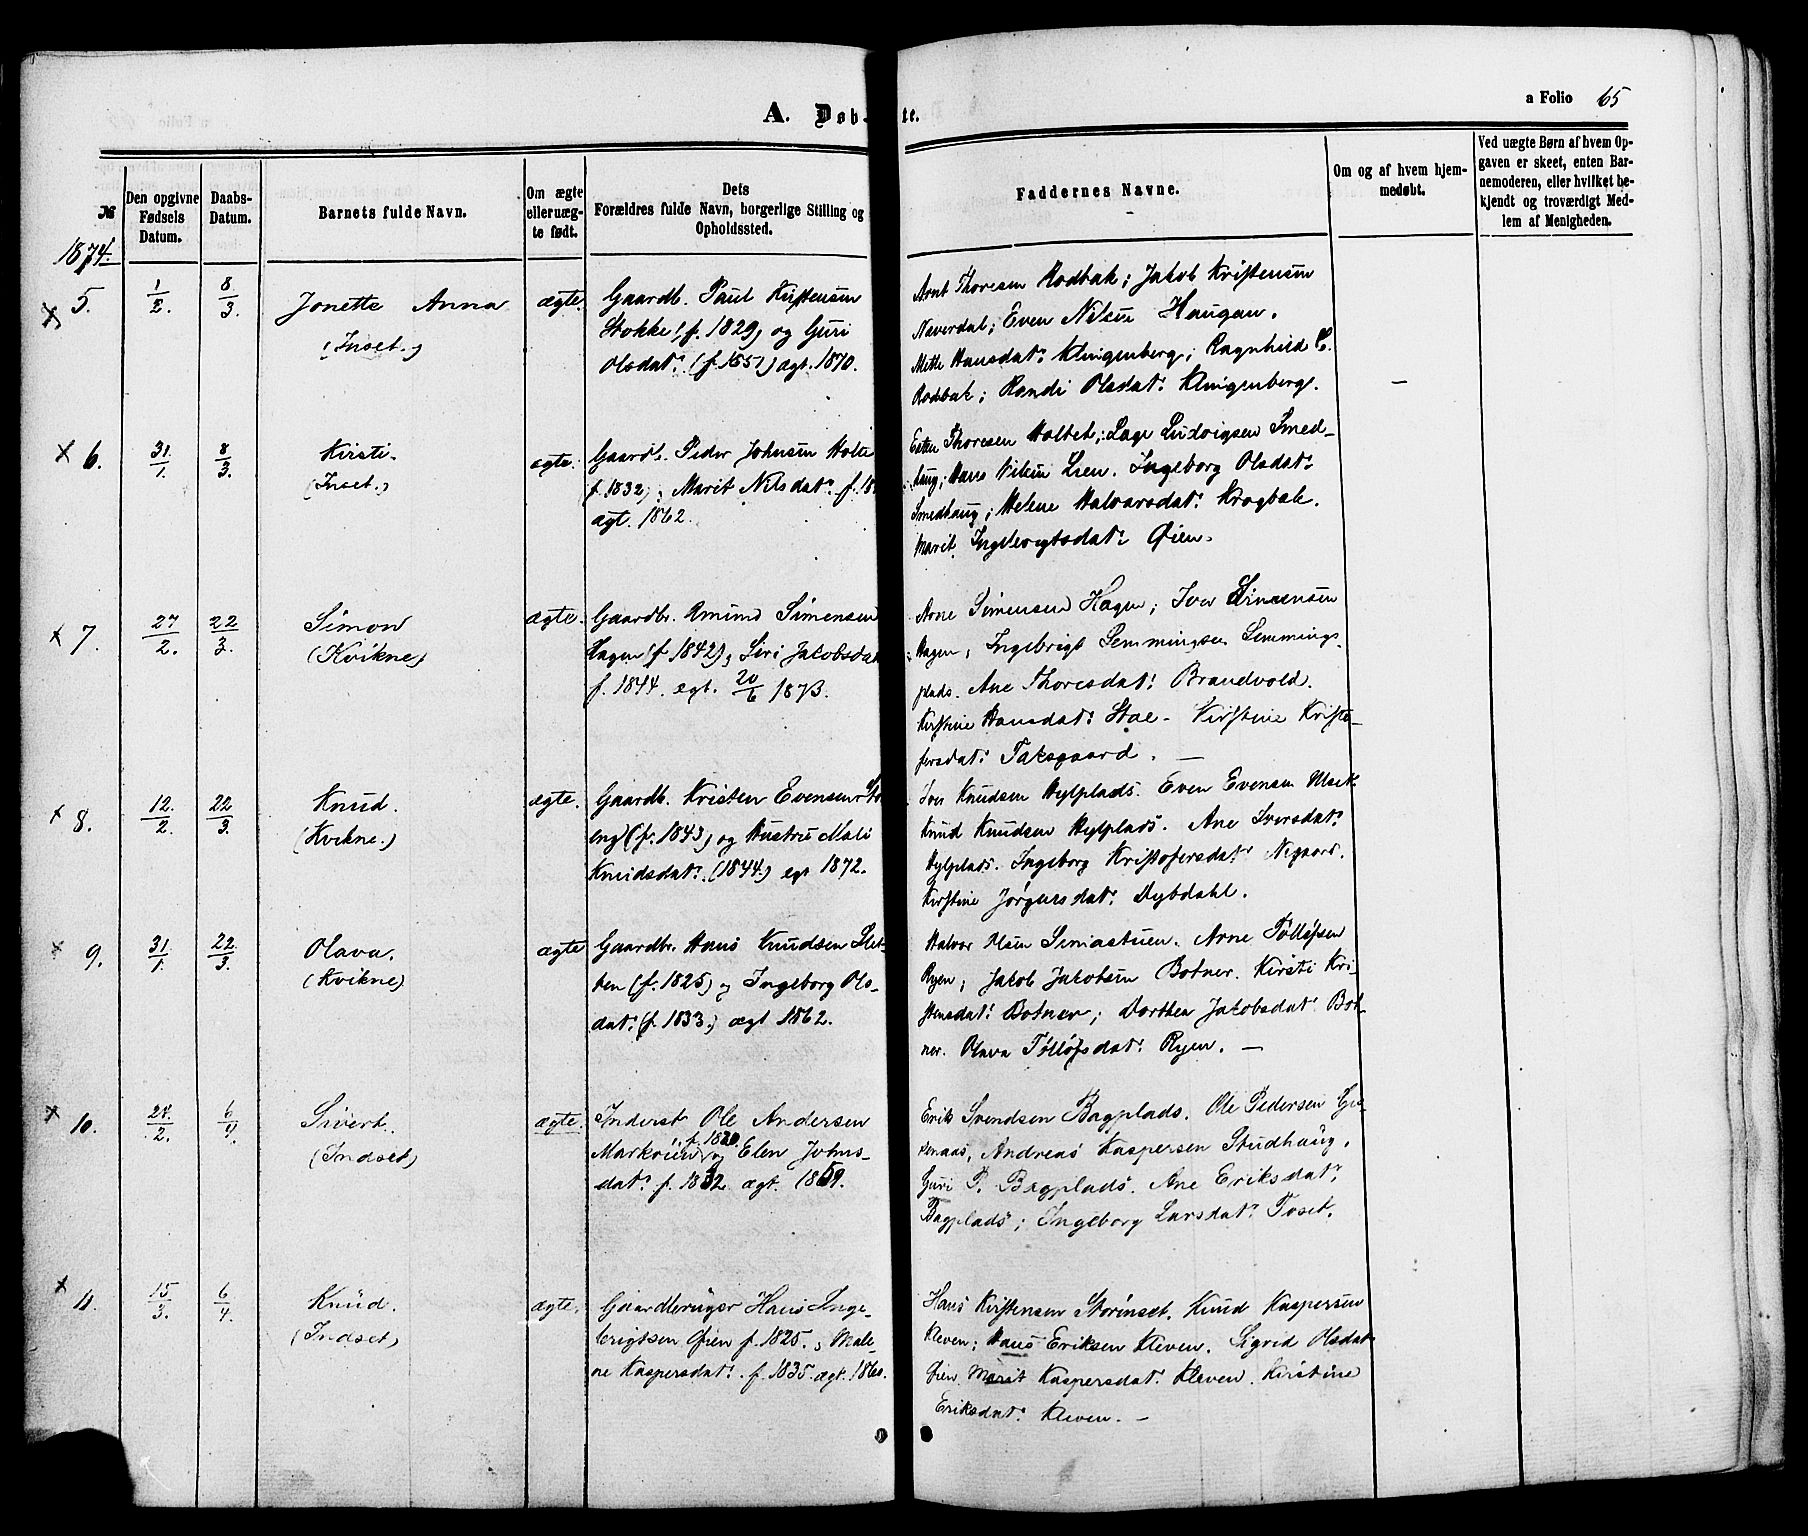 a Folio 65
A. Døb te.
№
Den opgivne Fødsels Datum.
Daabs-Datum.
Barnets fulde Navn.
Om ægte eller uæg-te født.
Dets
Forældres fulde Navn, borgerlige Stilling og
Opholdssted.
Faddernes Navne.
Om og af hvem hjem-
medøbt.
Ved uægte Børn af hvem Op-
gaven er skeet, enten Bar-
nemoderen, eller hvilket be-
kjendt og troværdigt Med-
lem af Menigheden.
1874.
5. 1/2. 8/3. Jonette Anna (Inset.) ægte.
Gaardb. Paul Kristensen
Stokke (f. 1829) og Guri
Olsdat: (f. 1851) ægt. 1870.
Arnt Thoresen Rodbak; Jakob Kristensen
Næverdal; Even Nilsen Haugan.
Mette Hansdat: Klingenberg; Ragnhild C.
Rodbak; Randi Olsdat: Klingenberg.
—
6. 31/1. 8/3. Kirsti. (Inset.) ægte.
Gaardb. Peder Johnsen Holte
f. 1832), Marit Nilsdat: f. 18
ægt. 1862.
Esten Thoresen Holtet; Lage Ludvigsen Smed-
haug; Hans Nilsen Lien. Ingeborg Olsdat:
Smedhaug; Helene Halvorsdat: Krogbak.
Marit Ingebrigtsdat: Øien.
7. 27/2. 22/3. Simon (Kvikne) ægte.
Gaardbr. Amund Simensen
Hagen (f. 1842), Siri Jacobsdat
f. 1844. egt. 20/6 1873.
Arne Simensen Hagen; Iver Simensen
Hagen, Ingebrigt Semmingsen Semmings-
plads. Ane Thoresdat: Brandvold.
Kirstine Hansdat: Stae. Kirstine Kristo-
fersdat: Taksgaard. —
8. 12/2. 22/3. Knud. (Kvikne.) ægte.
Gaardb. Kristen Evensen Sto
eng (f. 1843) og Hustru Mali
Knudsdat: (1844.) egt 1872.
Iver Knudsen Hylplads. Even Evensen Moek
Knud Knudsen Hylplads. Ane Iversdat:
Hylplads. Ingeborg Kristofersdat: Nygaard.
Kirstine Jørgensdat: Dybdahl.
9. 31/1. 22/3. Olava. (Kvikne) ægte
Gaardbr. Hans Knudsen Slet-
ten (f. 1825) og Ingeborg Ols-
dat: (f. 1833.) ægt 1862.
Halvor Olsen Simastuen. Arne Tølløfsen
Ryen; Jakob Jakobsen Botner. Kirsti Kri-
stensdat: Botner; Dorthea Jakobsdat: Bot-
ner. Olava Tølløfsdat: Ryen. —
10. 28/2. 6/4. Sivert. (Indset) ægte.
Inderst Ole Andersen
Markøien f. 1820. og Elen Johns-
dat: f. 1832 ægt. 1859.
Erik Svendsen Bagplads. Ole Pedersen Gr-
enaas, Andreas Kaspersen Studhaug.
Guri P. Bagplads. Ane Eriksdat:
Bagplads; Ingeborg Larsdat: Toset.
11. 15/3. 6/4. Knud. (Indset) ægte.
Gaardbruger Hans Inge-
brigtsen Øien f. 1825. og Male-
ne Kaspersdat: f. 1835 ægt. 1860.
Hans Kirstensen Storinset. Knud Kaspersen
Kleven; Hans Eriksen Kleven. Sigrid Olsdat
Øien. Marit Kaspersdat: Kleven. Kirstine
Eriksdat: Kleven. —